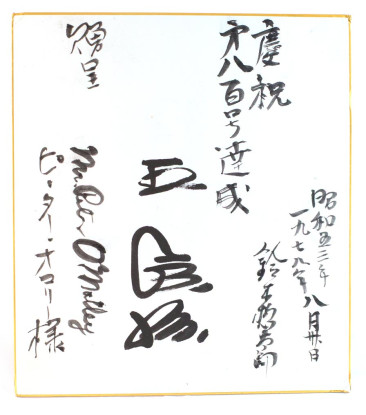 慶祝
第八百号達成
昭和五三年
一九七八年八月卅日
王 貞治
贈呈
Mr. Peter O'Malley
ピーター・オマリー様